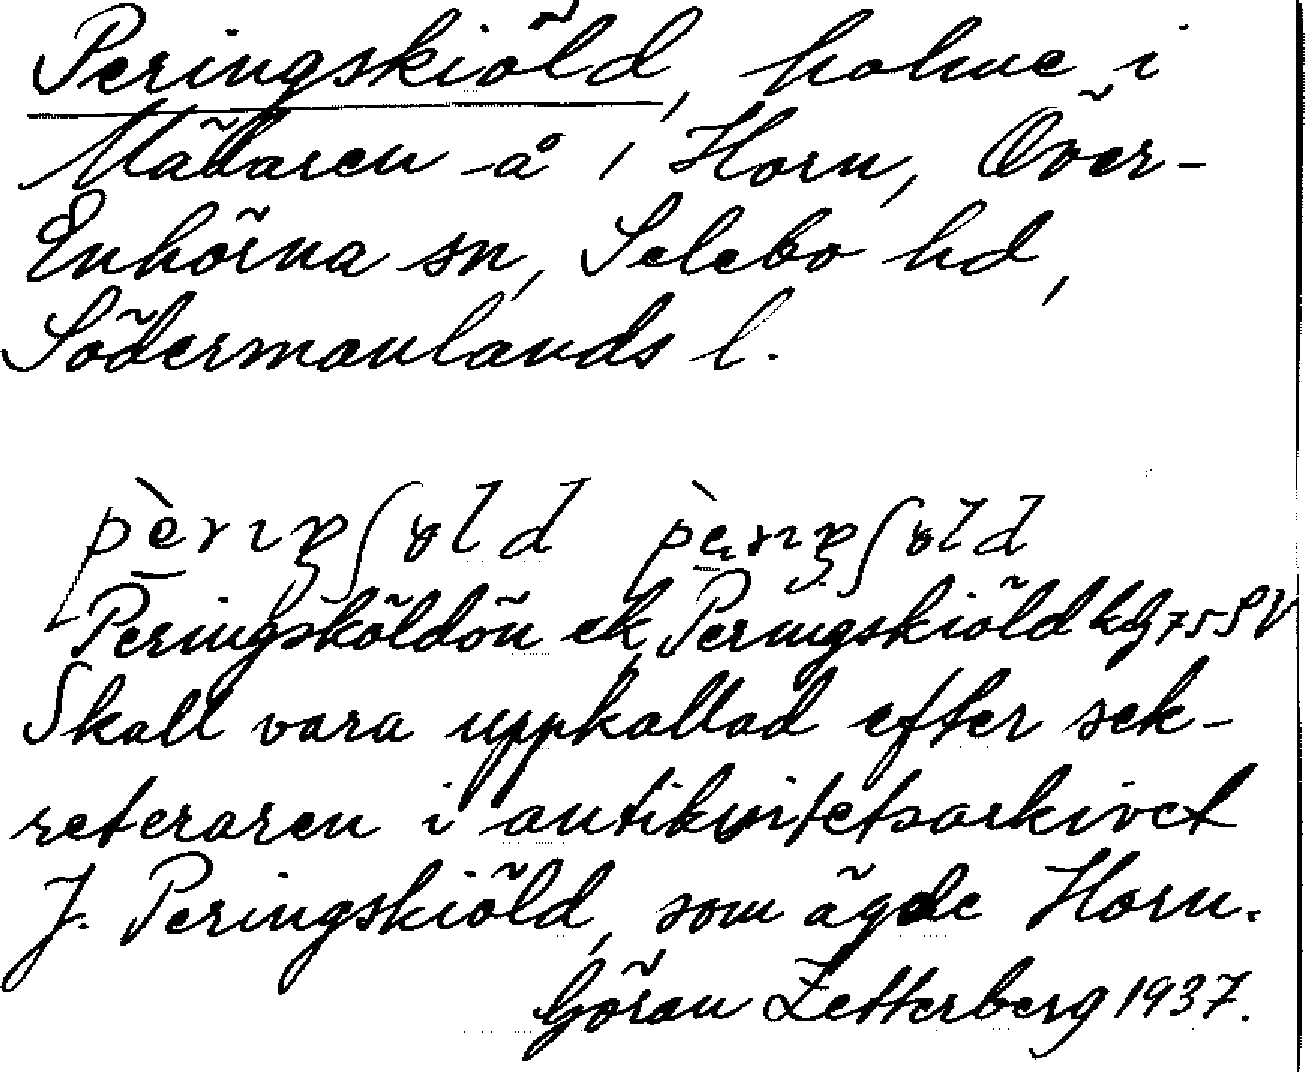 Peringskiöld, holme i
Mälaren å i Horn, Över-
Enhörna sn, Selebo hd,
Södermanlands l.
Peringsköldön ek Peringskiöld
Skall vara uppkallad efter sek-
reteraren i antikvitetsarkivet
J. Peringskiöld, som ägde Horn.
Göran Zetterberg 1937.